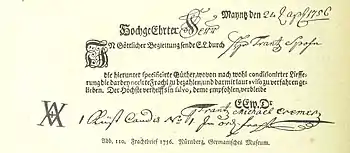 Mayntz den 21 Apr 1756
Hochgeehrter Herr
In Göttlicher Begleitung sende E.E. durch
Frantz Spohn
die hierunter specificirte Güther, wovon nach wohl conditionirter Lieffe-
rung die darbey notirte Fracht zu bezahlen, und darmit laut aviso zu verfahren ge-
lieben. Der Höchste verhelff's in salvo, deme empfohlen, verbleibe
E Ew. Dr
Frantz Michael Cremer
1 Kist Candis No 1
Abb. 110. Frachtbrief 1756. Nürnberg, Germanisches Museum.